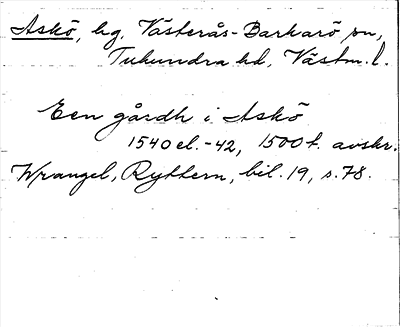 Askö, hg, Västerås-Barkarö sn,
Tuhundra hd, Västm. l.
Een gårdh i Askö
1540 el. -42, 1500t. avskr.
Wrangel, Ryttern, bil. 19, s. 78.